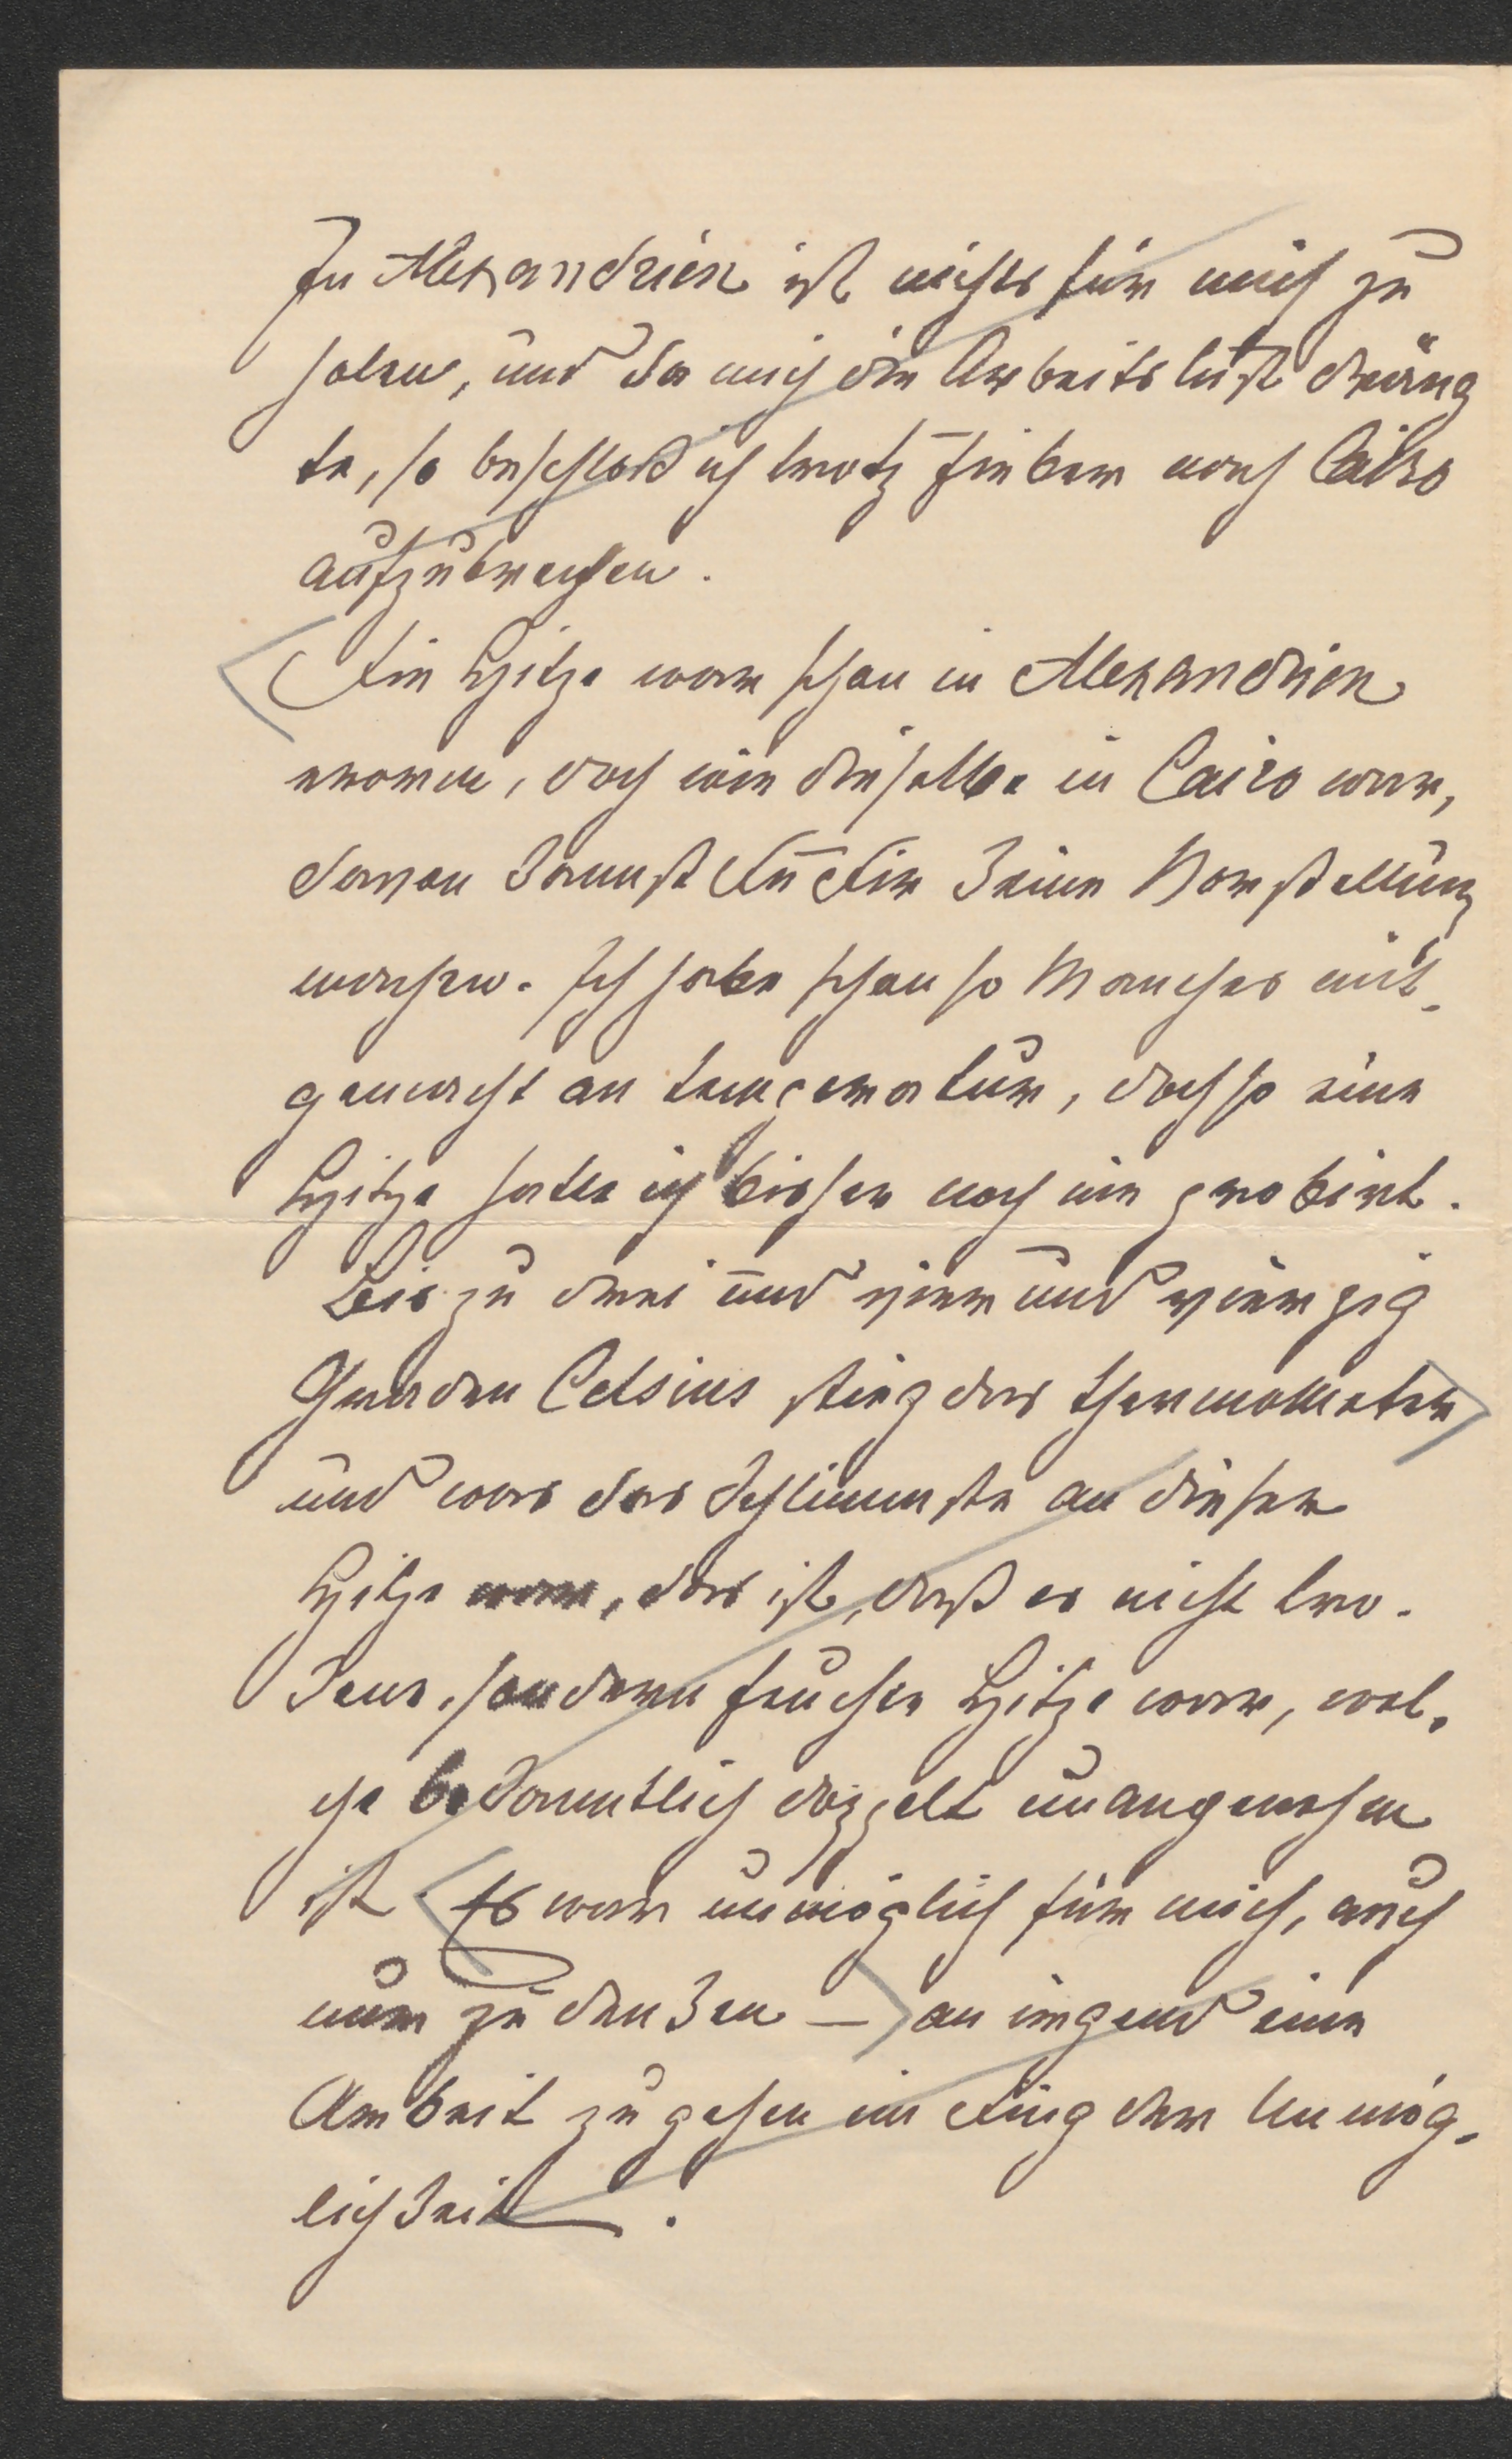 In Alexandrien ist nichts für mich zu
holen, und da mich die Arbeitslust dräng
te, so beschloß ich trotz Fieber nach Cairo
aufzubrechen.
Die Hitze war schon in Alexandrien
enorm, doch wie dieselbe in Cairo war,
davon kannst Du Dir keine Vorstellung
machen. Ich habe schon so Manches mit-
gemacht an Temperatur, doch so eine
Hitze hatte ich bisher noch nie probirt.
Bis zu drei und vierund vierzig
Graden Celsius stieg das Thermometer
und was das Schlimmste an dieser
Hitze war, das ist, daß es nicht tro-
kene, sondern feuchte Hitze war, wel-
che bekanntlich doppelt unangenehm
ist. Es war unmöglich für mich, auch
nur zu denken — an irgend eine
Arbeit zu gehen ein Ding der Unmög-
lichkeit.